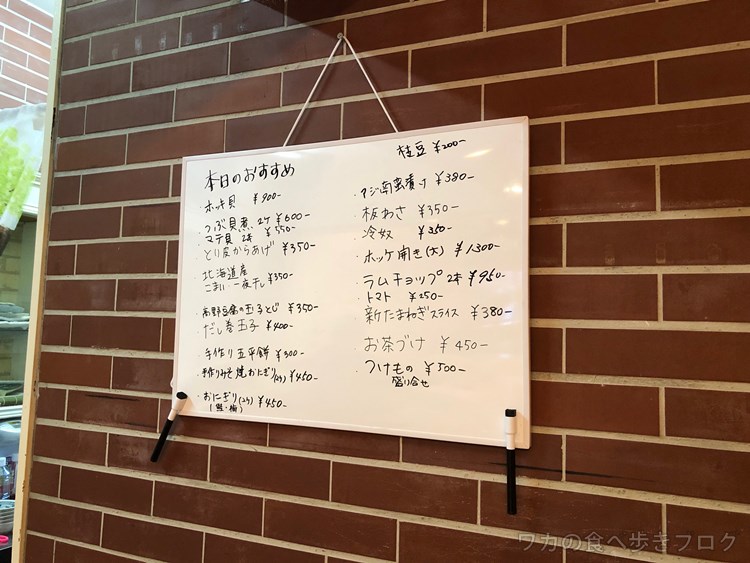 本日のおすすめ
・ホッキ貝 ¥900-
・つぶ貝煮 2ケ ¥600-
マテ貝 2本 ¥550-
・とり皮からあげ ¥350-
・北海道産
こまい一夜干し ¥350-
・高野豆腐の玉子とじ ¥350-
・だし巻玉子 ¥400-
・手作り五平餅 ¥300-
・手作りみそ焼おにぎり(2ケ) ¥450-
・おにぎり(2ケ) ¥450-
(鮭・梅)
枝豆 ¥200-
・アジ南蛮漬け ¥380-
・板わさ ¥350-
・冷奴 ¥350-
・ホッケ開き(大) ¥1,300-
・ラムチョップ 2本 ¥950-
・トマト ¥250-
・新たまねぎスライス ¥380-
・お茶づけ ¥450-
・つけもの ¥500-
盛り合せ
ワカの食べ歩きブログ